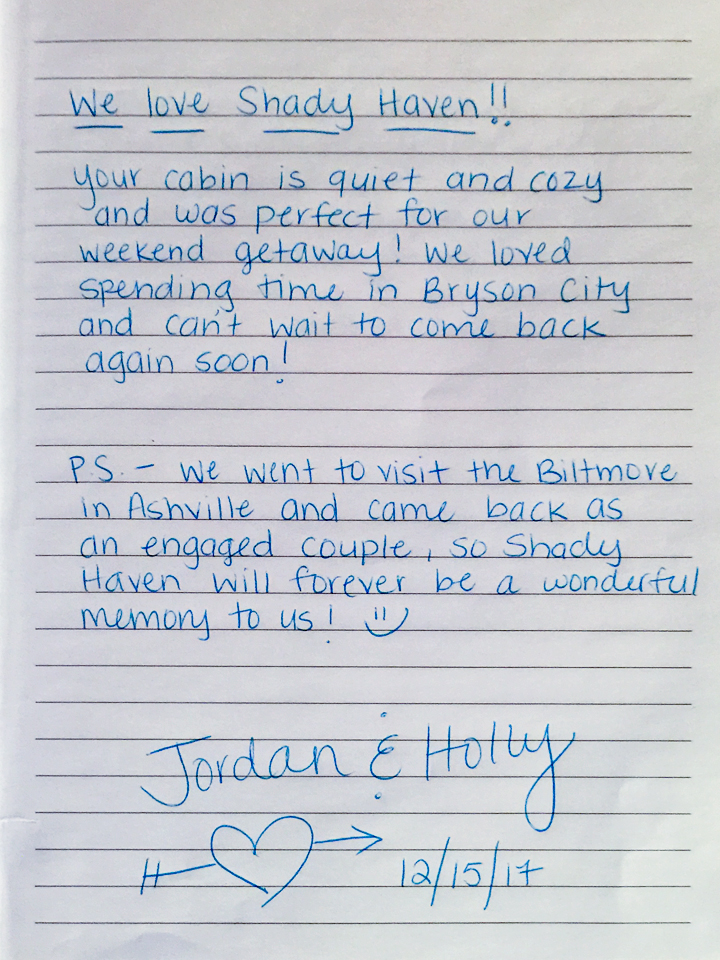 We love Shady Haven!!
Your cabin is quiet and cozy
and was perfect for our
weekend getaway! We loved
spending time in Bryson City
and can't wait to come back
again soon!
P.S. - We went to visit the Biltmore
in Ashville and came back as
an engaged couple, so Shady
Haven will forever be a wonderful
memory to us! :)
Jordan & Holly
12/15/17